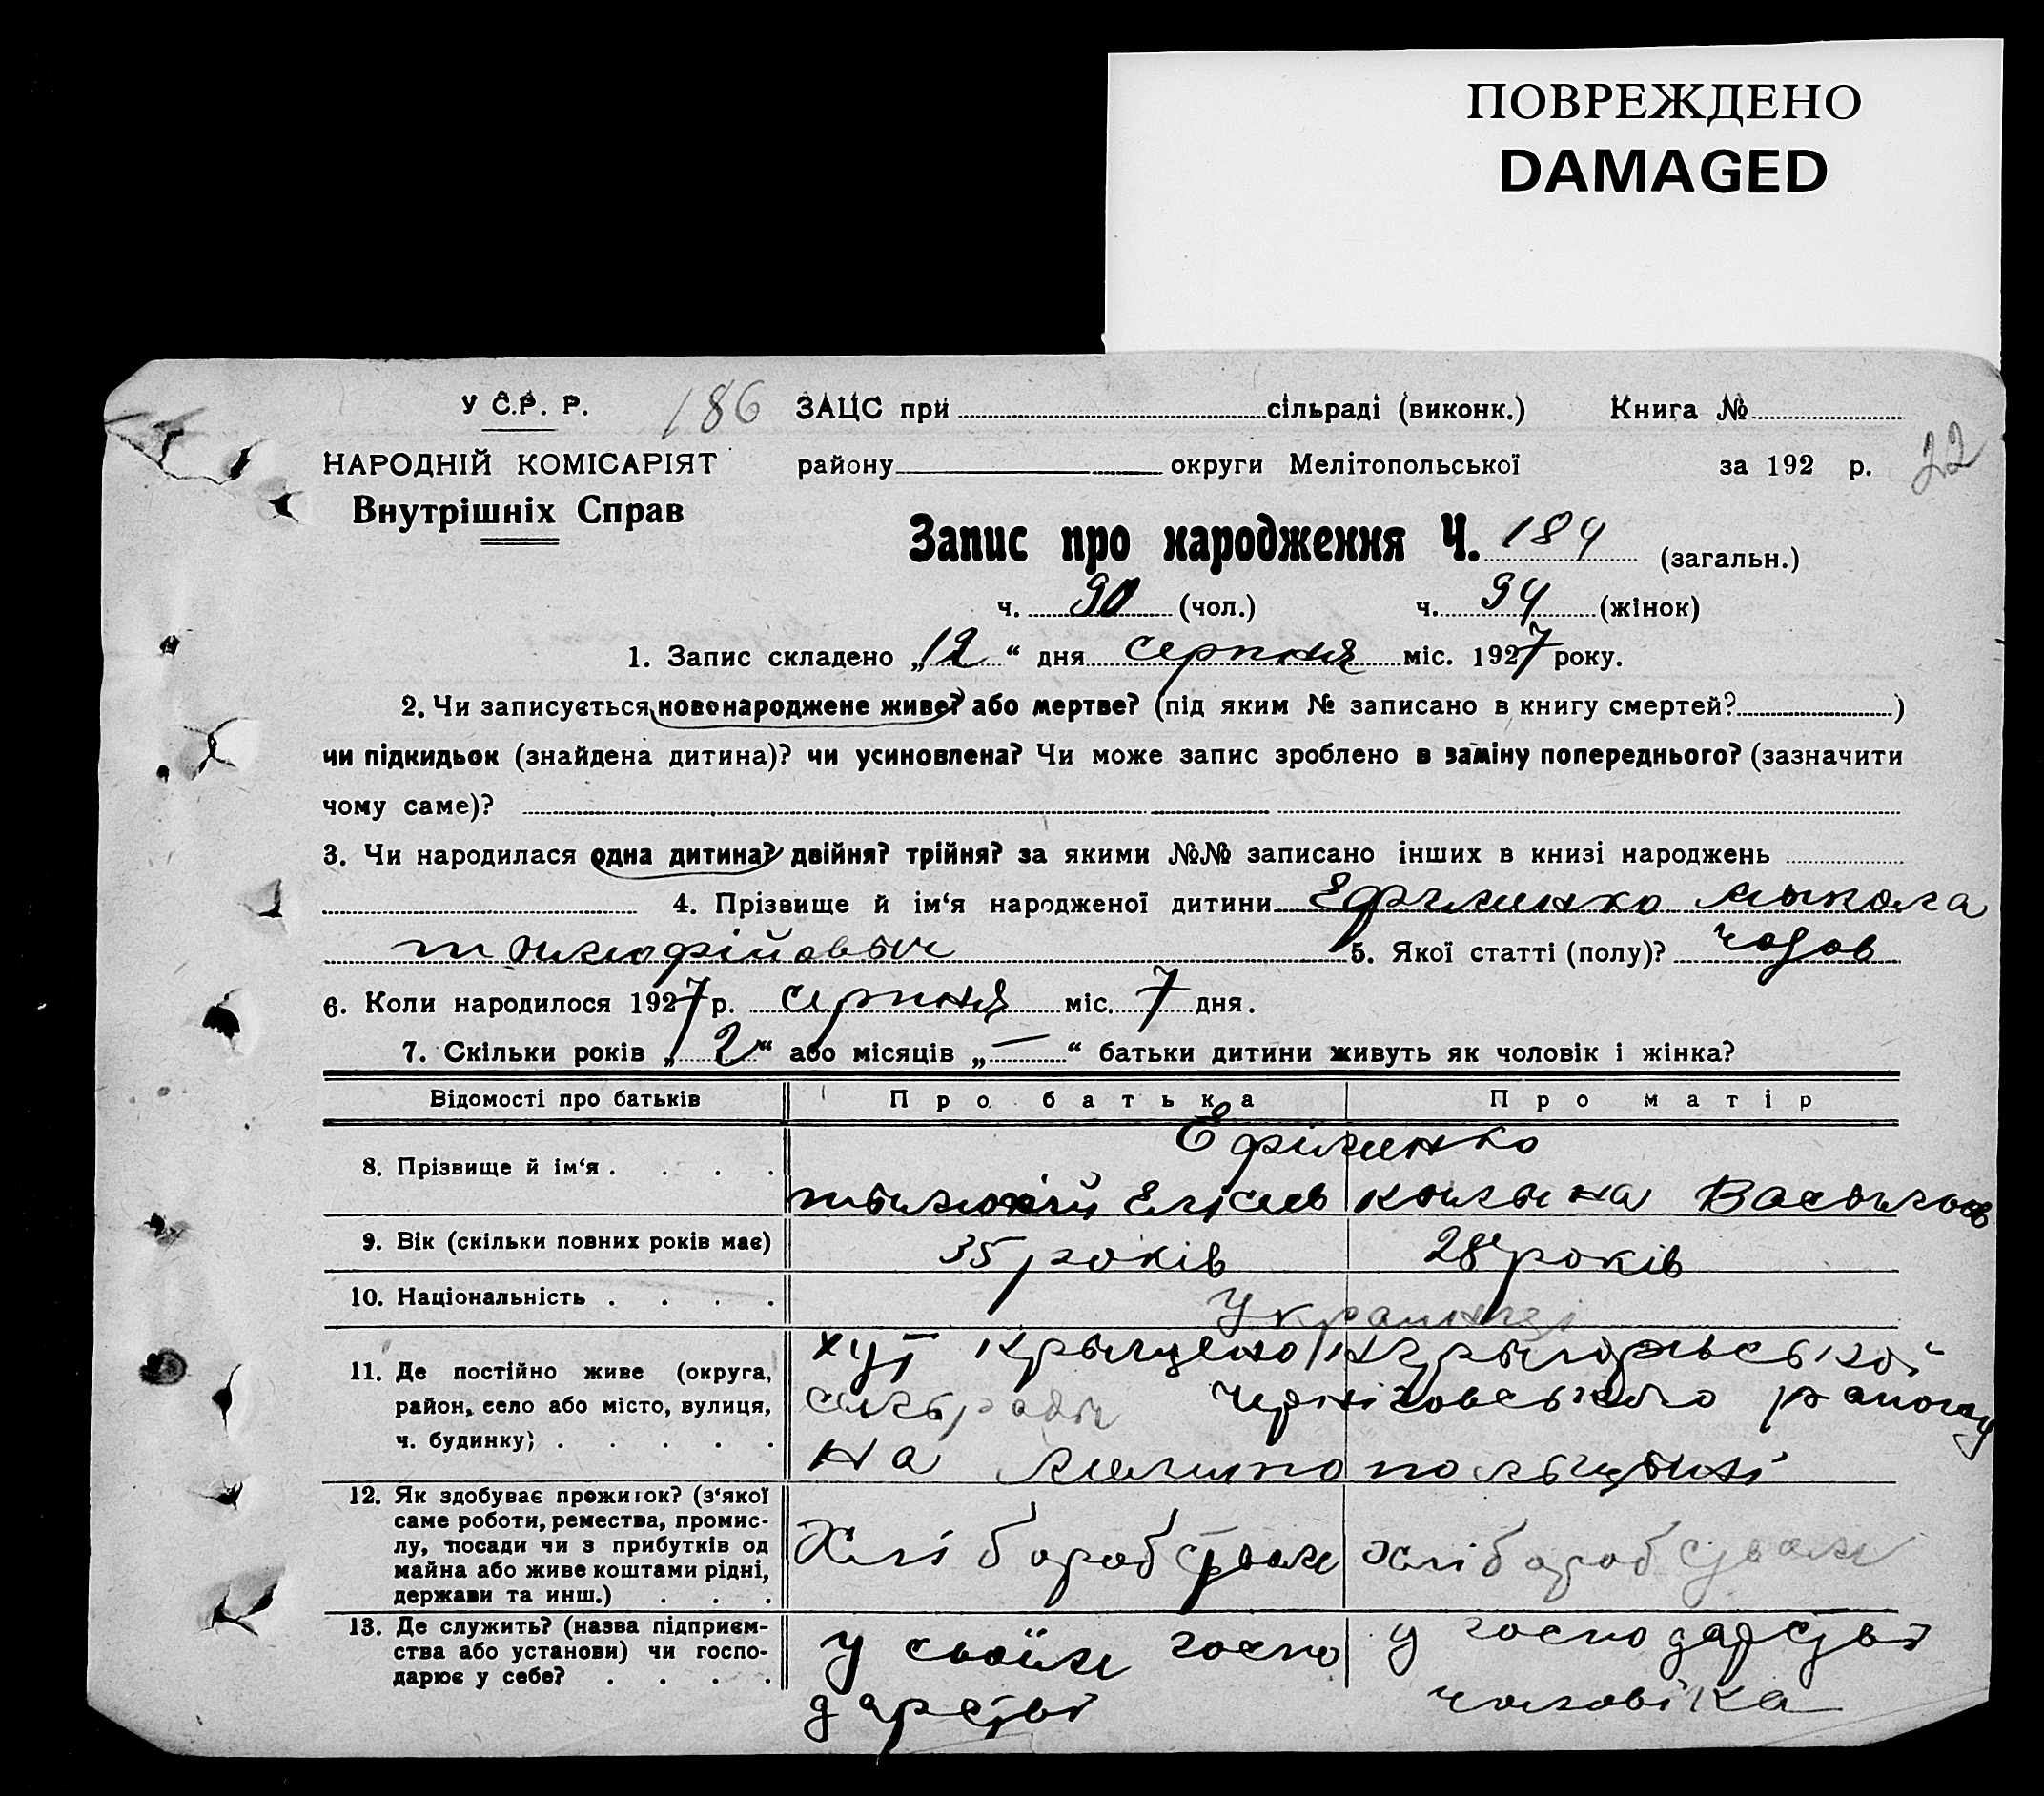 ПОВРЕЖДЕНО
DAMAGED
У С.Р. Р. 186 ЗАЦС при сільраді (виконк.) Книга №
НАРОДНІЙ КОМІСАРІЯТ району округи Мелітопольської за 192 р. 22
Внутрішніх Справ
Запис про народження Ч. 184 (загальн.)
ч. 90 (чол.) ч. 94 (жінок)
1. Запис складено „12“ дня серпня міс. 1927 року.
2. Чи записується новонароджене живе? або мертве? (під яким № записано в книгу смертей? )
чи підкидьок (знайдена дитина)? чи усиновлена? Чи може запис зроблено в заміну попереднього? (зазначити
чому саме)?
3. Чи народилася одна дитина? двійня? трійня? за якими №№ записано інших в книзі народжень
4. Прізвище й ім‘я народженої дитини Ефименко Мыкола
5. Якої статті (полу)? чолов
6. Коли народилося 1927 р. серпня міс. 7 дня.
7. Скільки років „2“ або місяців „—“ батьки дитини живуть як чоловік і жінка?
Відомості про батьків Про батька Про матір
Ефіменко
8. Прізвище й ім‘я . . . . Елісеев
9. Вік (скільки повних років має) 35 років 28 років
10. Національність . . . . Украинці
11. Де постійно живе (округа, хут
район, село або місто, вулиця, сільради Чернiговського району
ч. будинку) . . . . . на Мелитопольщині
12. Як здобуває прожиток? (з‘якої
саме роботи, ремества, промис-
лу, посади чи з прибутків од Хліборобством хліборобством
майна або живе коштами рідні,
держави та инш.) . . .
13. Де служить? (назва підприєм- у своїм госпо у господарстві
ства або установи) чи госпо-
дарює у себе? . . . . дарстві чоловіка